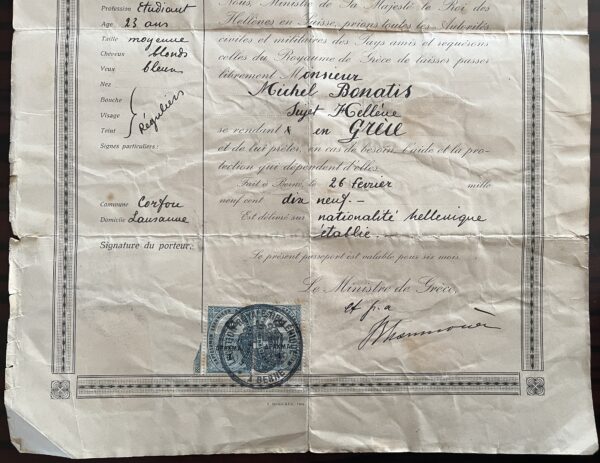 Profession Etudiant
Age 23 ans
Taille moyenne
Cheveux blonds
Yeux bleus
Nez
Bouche
Visage
Teint
Réguliers
Signes particuliers :
Commune Corfou
Domicile Lausanne
Signature du porteur:
Nous, Ministre de Sa Majesté le Roi des
Hellènes en Suisse, prions toutes les Autorités
civiles et militaires des Pays amis et requérons
celles du Royaume de Grèce de laisser passer
librement Monsieur
Michel Bonatis
Sujet Hellène
se rendant x en Grèce
et de lui prêter, en cas de besoin, l'aide et la pro-
tection qui dépendent d'elles.
Fait à Berne, le 26 Fevrier mille
neuf cent dix neuf.—
Est délivré sur nationalité hellenique
établie.—
Le présent passeport est valable pour six mois.
Le Ministre de Grèce
et p.a
BERNE